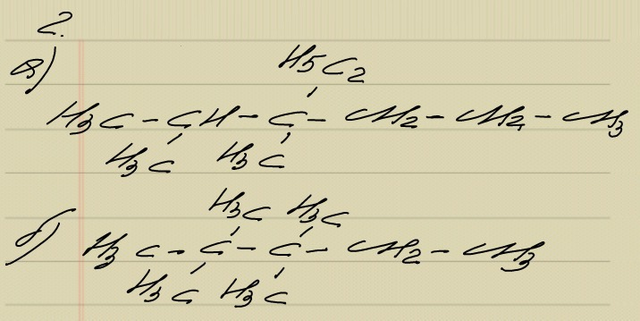 2.
а)
H5C2
H3C - CH - C - CH2 - CH2 - CH3
H3C H3C
б)
H3C H3C
H3C - C - C - CH2 - CH3
H3C H3C